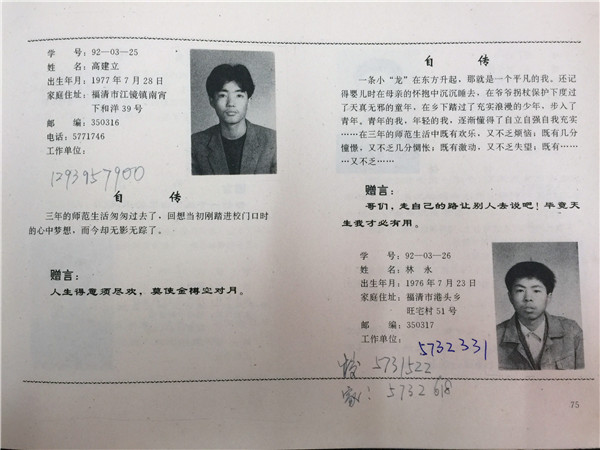 学　　号：92—03—25
姓　　名：高建立
出生年月：1977 年 7 月 28 日
家庭住址：福清市江镜镇南宵
下和洋 39 号
邮　　编：350316
电话：5771746
工作单位：
1293957900
自　　传
三年的师范生活匆匆过去了，回想当初刚踏进校门口时
的心中梦想，而今却无影无踪了。
赠言：
人生得意须尽欢，莫使金樽空对月。
自　　传
一条小“龙”在东方升起，那就是一个平凡的我。还记
得婴儿时在母亲的怀抱中沉沉睡去，在爷爷拐杖保护下度过
了天真无邪的童年，在乡下踏过了充实浪漫的少年，步入了
青年。青年的我，年轻的我，逐渐懂得了自立自强自我充实
……在三年的师范生活中既有欢乐，又不乏烦恼；既有几分
憧憬，又不乏几分惆怅；既有激动，又不乏失望；既有……
……又不乏……
赠言：
哥们，走自己的路让别人去说吧！毕竟天
生我才必有用。
学　　号：92—03—26
姓　　名：林　永
出生年月：1976 年 7 月 23 日
家庭住址：福清市港头乡
旺宅村 51 号
邮　　编：350317
工作单位：
5732331
5731522
家：5732618
75